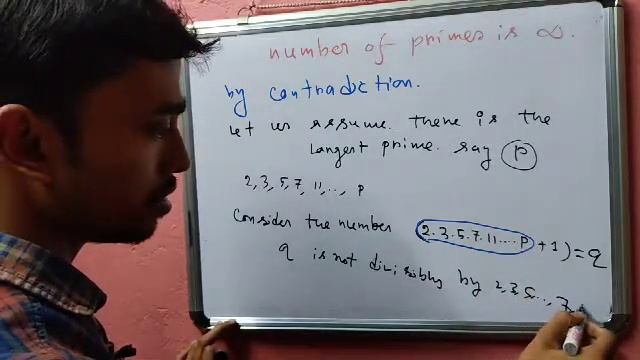 number of primes is ∞.
by contradiction.
Let us assume there is the
largest prime. say P
2, 3, 5, 7, 11, .., P
Consider the number 2.3.5.7.11....P + 1) = q
q is not divisibly by 2, 3, 5, ..., 7,